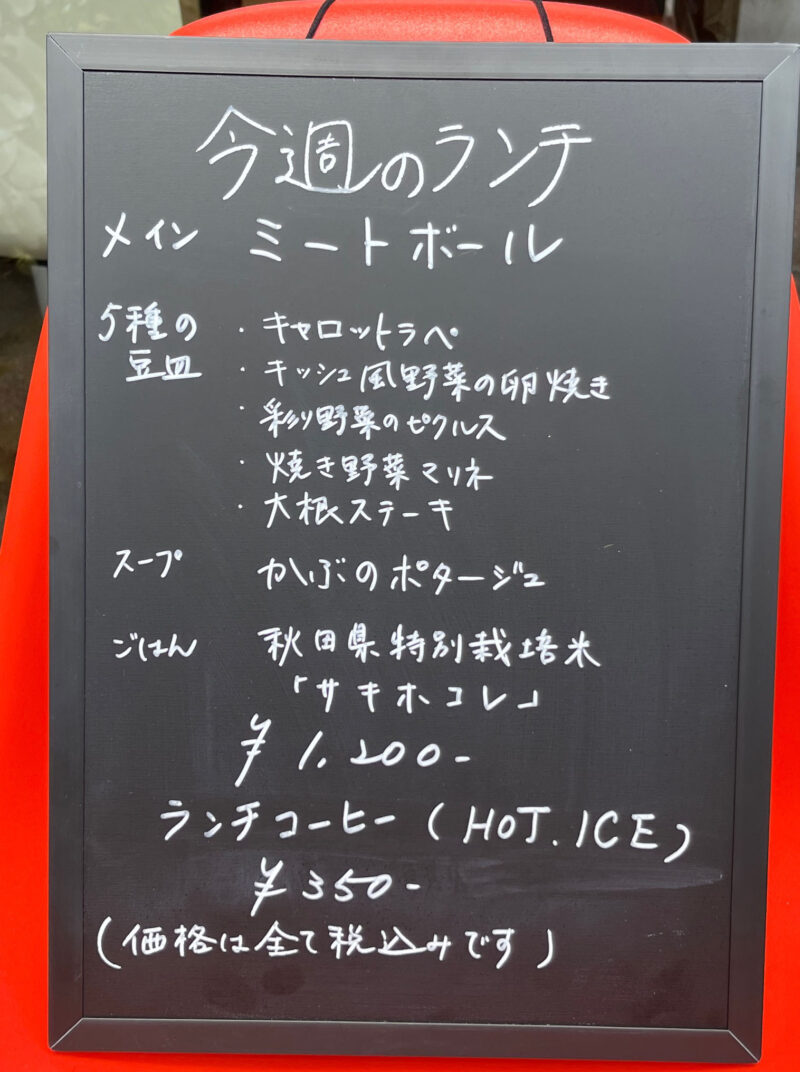 今週のランチ
メイン ミートボール
5種の豆皿 ・キャロットラペ
・キッシュ風野菜の卵焼き
・彩り野菜のピクルス
・焼き野菜マリネ
・大根ステーキ
スープ かぶのポタージュ
ごはん 秋田県特別栽培米
「サキホコレ」
¥1,200-
ランチコーヒー(HOT.ICE)
¥350-
(価格は全て税込みです)